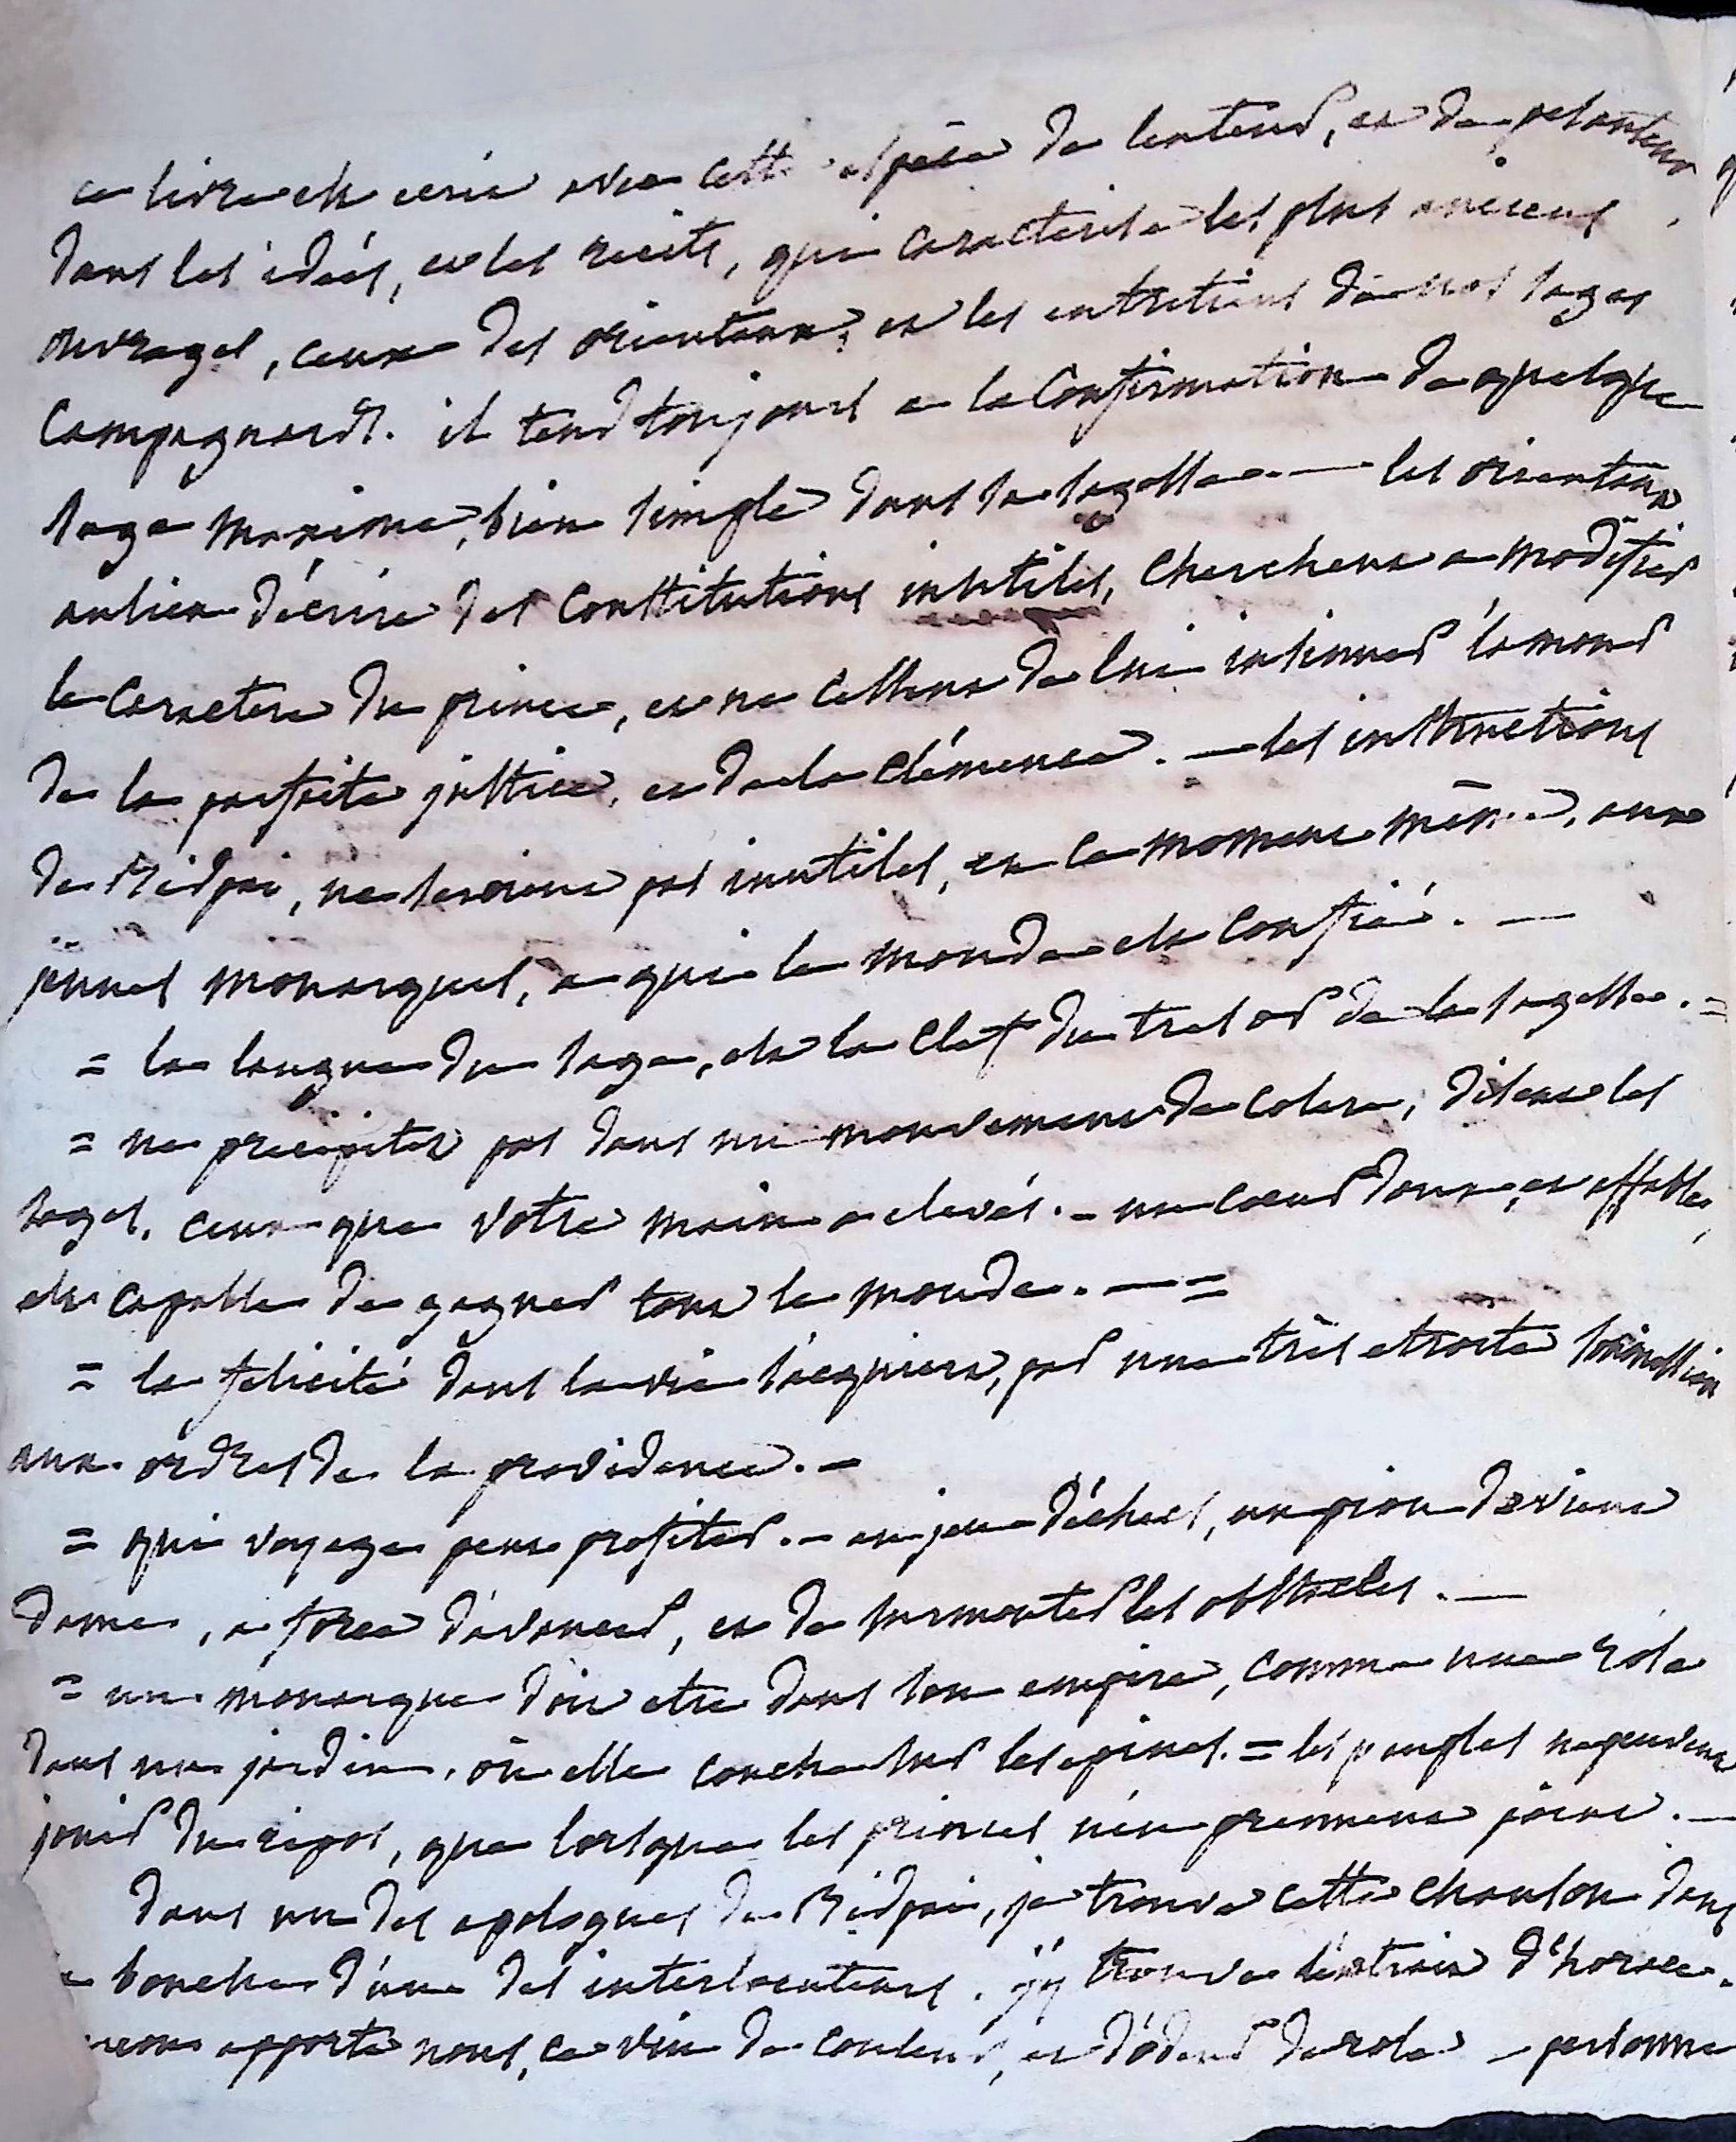 ce livre est ecrit avec cette espèce de lenteur, et de pesanteur
dans les idées, et les recits, qui caracterise les plus anciens
ouvrages, ceux des orientaux, et les entretiens de nos sages
campagnards. il tend toujours a la confirmation de quelque
sage maxime, bien simple dans sa sagesse. — les orientaux
au lieu d'écrire des constitutions subtiles, cherchent a modifier
le caractere du prince, et ne cessent de lui insinuer l'amour
de la parfaite justice, et de la clémence. — les instructions
de Bidpai, ne seroient pas inutiles, en ce moment même, aux
jeunes monarques, a qui le monde est confié. —
= la langue du sage, est la clef du tresor de la sagesse. =
= ne precipiter pas dans un mouvement de colere, disent les
sages, ceux que votre main a elevés. - un coeur doux, et affable,
est capable de gagner tout le monde. — =
= la felicité dans la vie s'acquiert, par une très etroite soumission
aux ordres de la providence. -
= qui voyage peut profiter. - au jeu d'échecs, un pion devient
dame, a force d'avancer, et de surmonter les obstacles. —
= un monarque doit etre dans son empire, comme une rose
dans un jardin, où elle couche sur les epines. = les peuples ne peuvent
jouir du repos, que lorsque les princes n'en prennent point. —
dans un des apologues de Bidpai, je trouve cette chanson dans
la bouche d'un des interlocuteurs. j'y trouve d'horace.
apporte nous, ce vin de couleur, et d'odeur de rose - personne